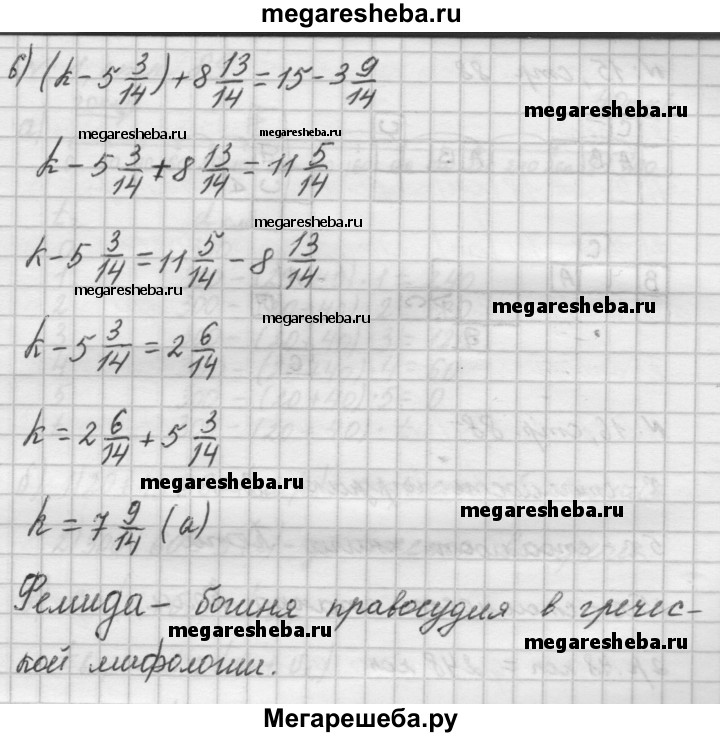 megaresheba.ru
б) (k - 5 3/14) + 8 13/14 = 15 - 3 9/14
megaresheba.ru
megaresheba.ru
megaresheba.ru
k - 5 3/14 + 8 13/14 = 11 5/14
megaresheba.ru
k - 5 3/14 = 11 5/14 - 8 13/14
megaresheba.ru
megaresheba.ru
megaresheba.ru
k - 5 3/14 = 2 6/14
k = 2 6/14 + 5 3/14
megaresheba.ru
megaresheba.ru
k = 7 9/14 (а)
Фемида - богиня правосудия в гречес-
megaresheba.ru
megaresheba.ru
кой мифологии.
Мегарешеба.ру